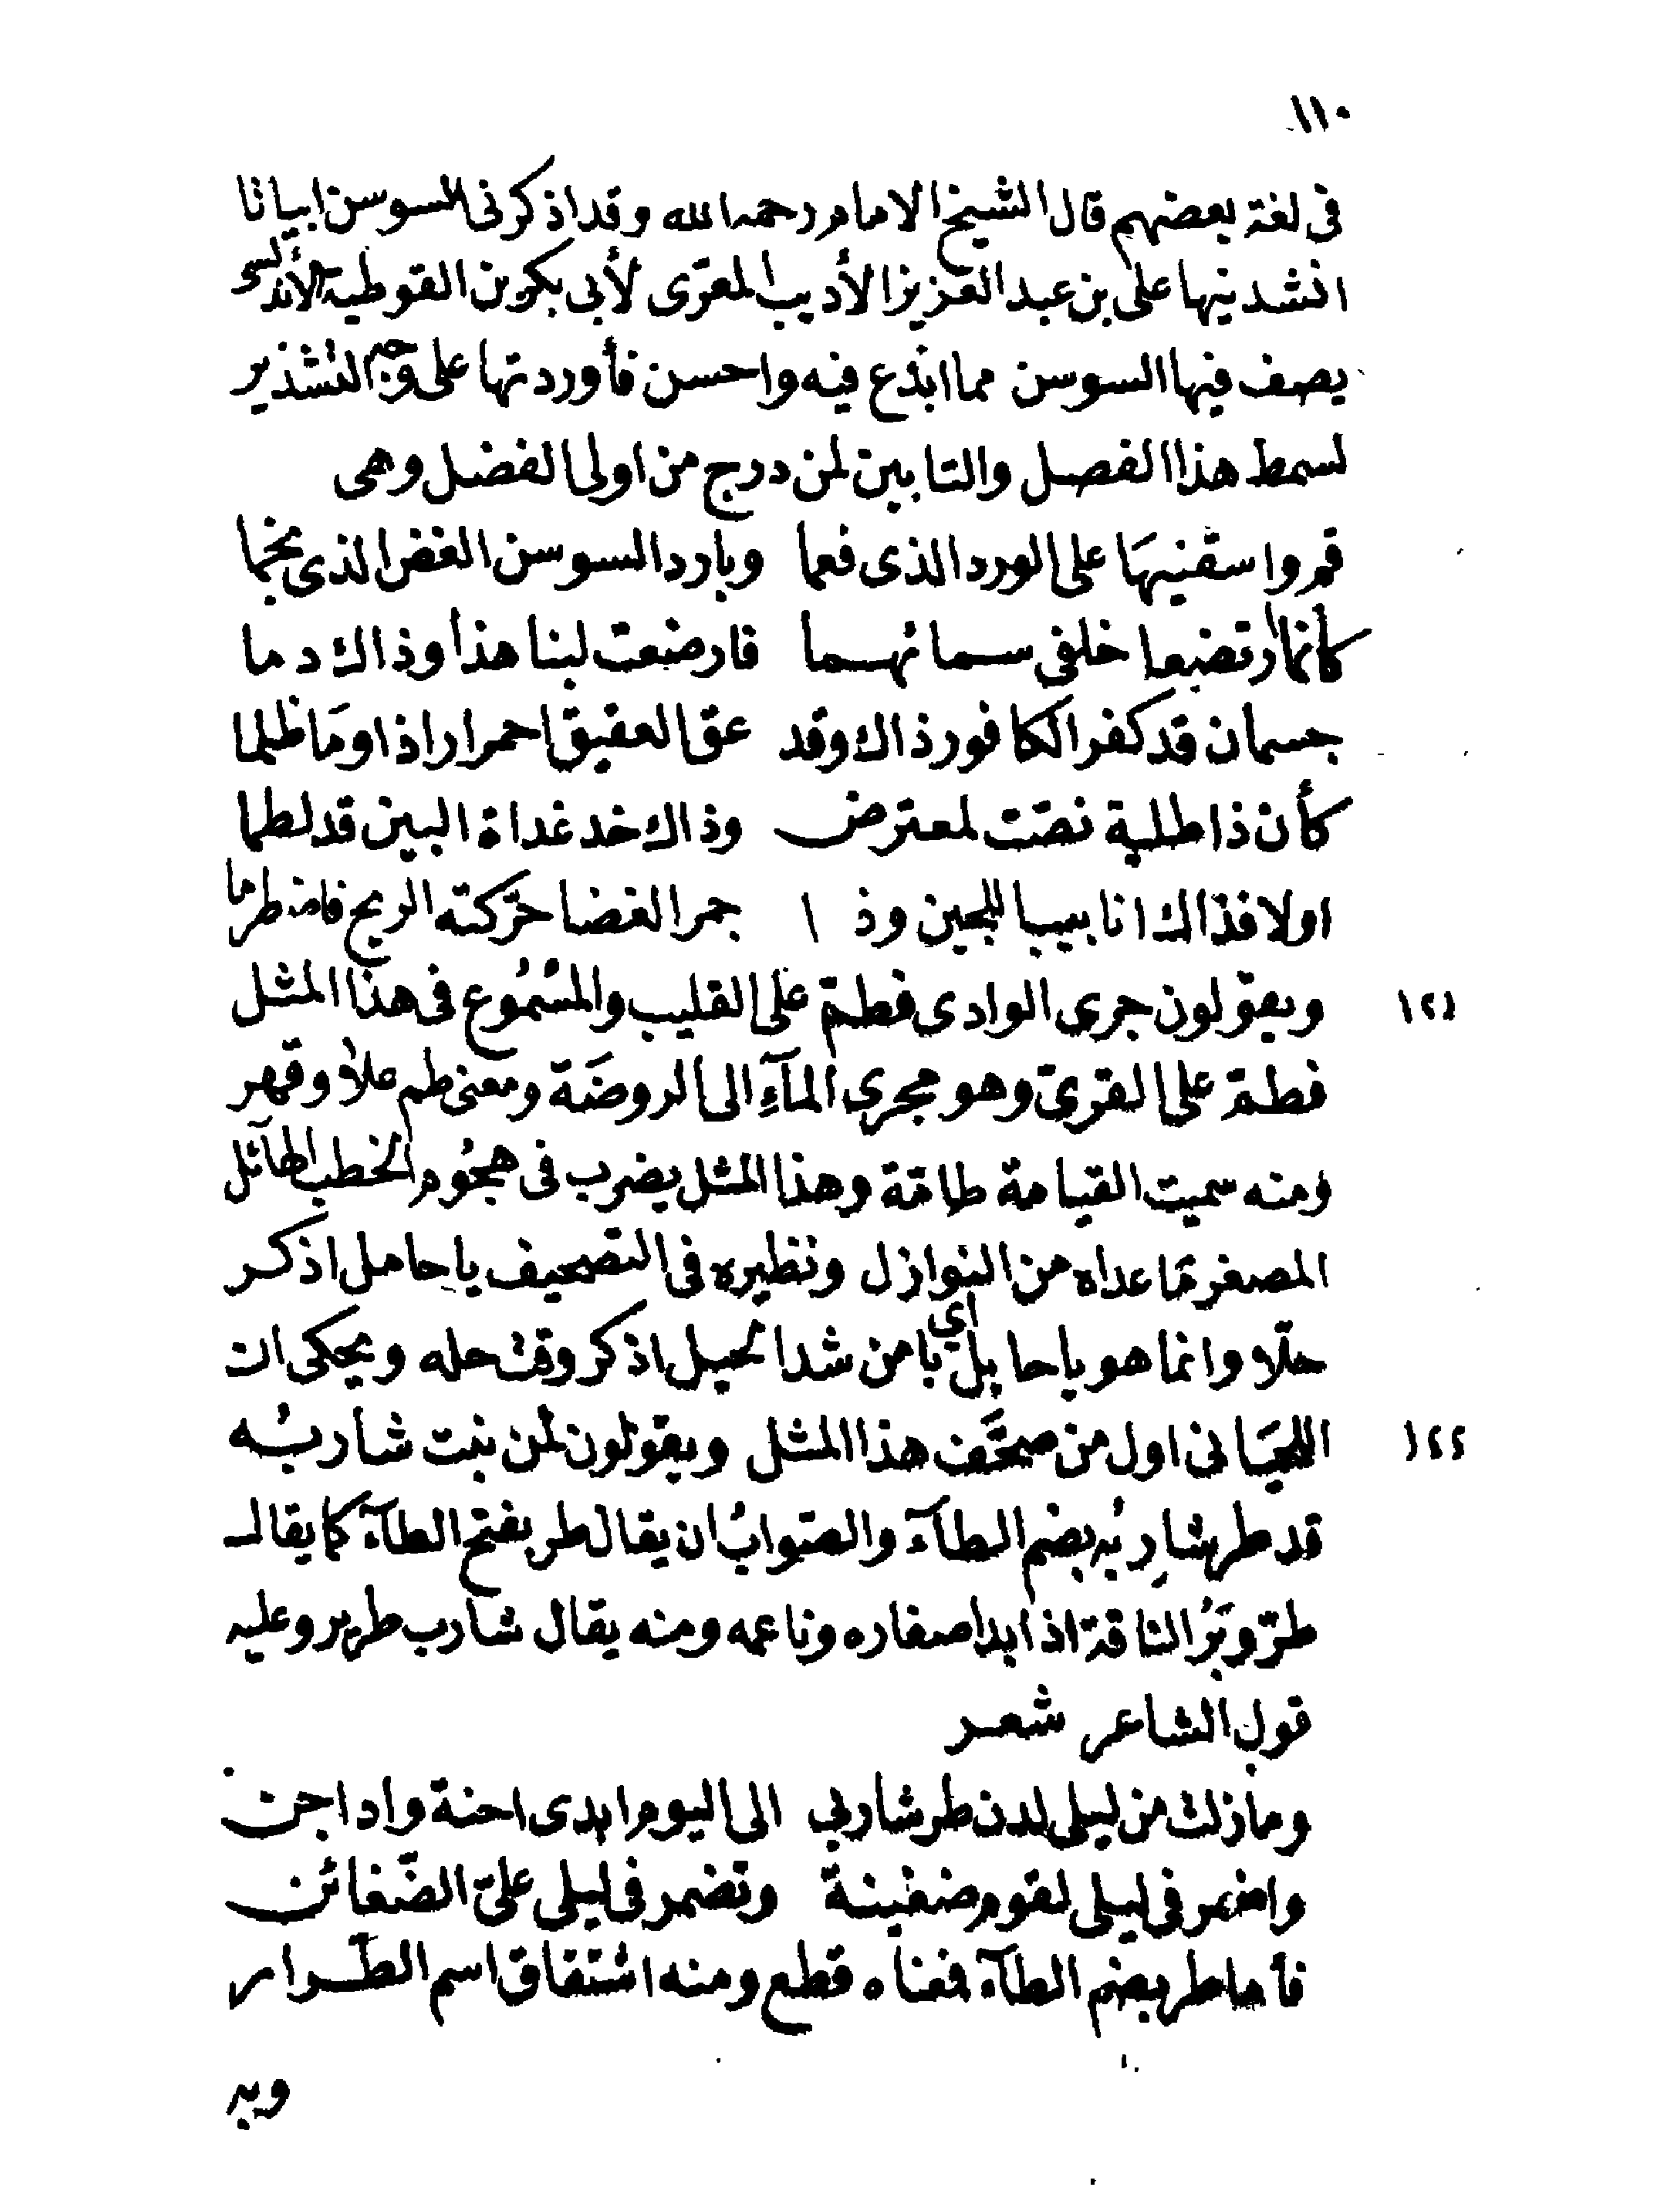 ١١٠
فى لغة بعضهم قال الشيخ الامام رحمه الله وقد اذكرنى السوسن ابياتا
انشدنيها على بن عبد العزيز الأديب المغربى لأبى بكر بن القوطية الأندلسى
يصف فيها السوسن مما ابدع فيه واحسن فأوردتها على وجه التشذير
لسمط هذا الفصل والتابين لمن درج من اولى الفضل وهى
قم واسقنيهَا على الورد الذى فعما وبادر السوسن الغض الذى نجما
كأنما ارتضعا خلفى سمائهما فارضعت لبنا هذا وذاك دما
جسمان قد كفر الكافور ذاك وقد عق العقيق احمرارا ذا ومَا ظلما
كأن ذا طلية نصّت لمعترض وذاك خد غداة البين قد لطما
اولا فذاك انابيب اللجين وذا جمر الغضا حرّكته الريح فاضطرما
١٢١ ويقولون جرى الوادى فطمّ على القليب والمسْمُوع فى هذا المثل
فطمّ على القرىّ وهو مجرى المآءِ الى الروضَة ومعنى طم علا وقهر
ومنه سميت القيامة طامّة وهذا المثل يضرب فى هجُوم الخطب الهآئل
المصغر مَا عداه من النوازل ونظيره فى التصحيف يا حامل اذكر
حلّا وانما هو يا حابل اى يا من شد الحبل اذكر وقت حله ويحكى ان
١٢٢ اللحيَانى اول من صحَّف هذا المثل ويقولون لمن نبت شاربُه
قد طر شاربُه بضم الطآء والصّوابُ ان يقال طر بفتح الطآء كما يقال
طرّ وبَرُ الناقة اذا بدا صغاره وناعمه ومنه يقال شارب طرير وعليه
قول الشاعر شعر
وما زلت من ليلى لدن طر شاربى الى اليوم ابدى احنة واداجن
واضمر فى ليلى لقوم ضغينة وتضمر فى ليلى علىّ الضّغائن
فأما طر بضم الطآء فمعناه قطع ومنه اشتقاق اسم الطّرار
وبه